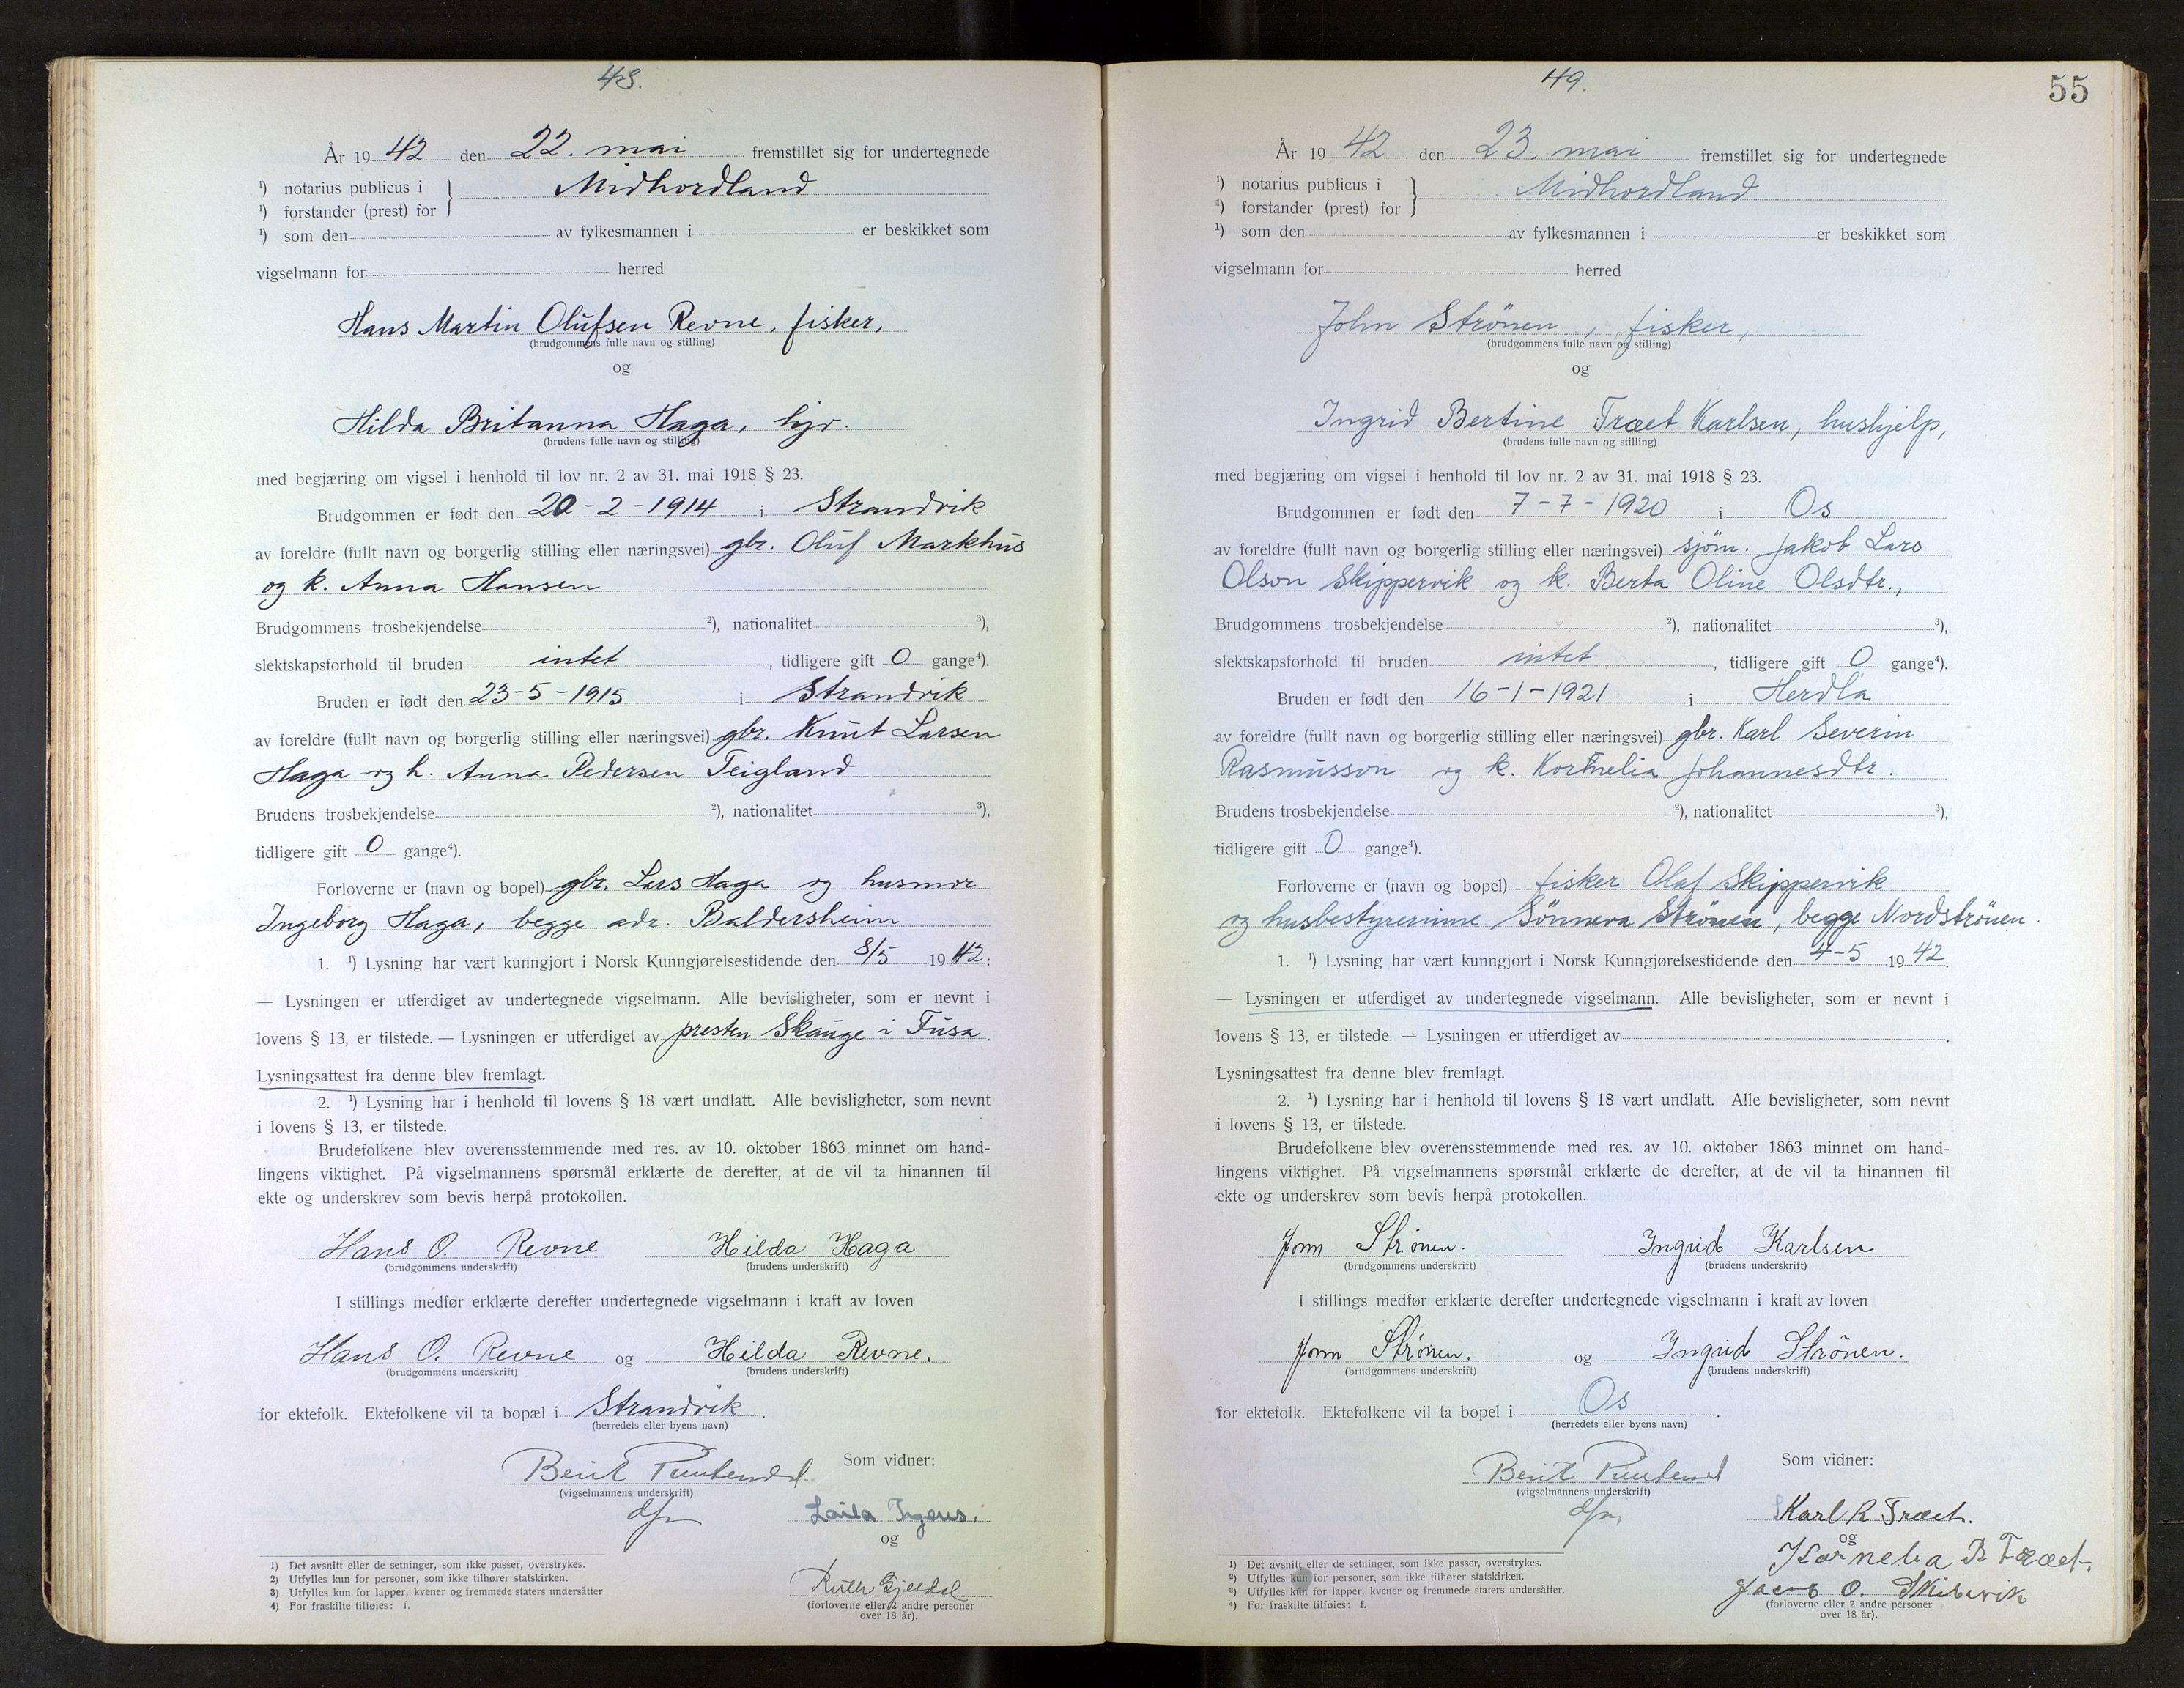 48.
År 19 42 den 22. mai fremstillet sig for undertegnede
¹) notarius publicus i
Midhordland
¹) forstander (prest) for
¹) som den av fylkesmannen i er beskikket som
vigselmann for herred
Hans Martin Olufsen Revne, fisker,
(brudgommens fulle navn og stilling)
og
Hilda Britanna Haga, hjv.
(brudens fulle navn og stilling)
med begjæring om vigsel i henhold til lov nr. 2 av 31. mai 1918 § 23.
Brudgommen er født den 20-2-1914 i Strandvik
av foreldre (fullt navn og borgerlig stilling eller næringsvei) gbr. Oluf Markhus
og k. Anna Hansen
Brudgommens trosbekjendelse ²), nationalitet ³),
slektskapsforhold til bruden intet, tidligere gift 0 gange⁴).
Bruden er født den 23-5-1915 i Strandvik
av foreldre (fullt navn og borgerlig stilling eller næringsvei) gbr. Knut Larsen
Haga og h. Anna Pedersen Teigland
Brudens trosbekjendelse ²), nationalitet ³),
tidligere gift 0 gange⁴).
Forloverne er (navn og bopel) gbr. Lars Haga og husmor
Ingeborg Haga, begge adr. Baldersheim
1. ¹) Lysning har vært kunngjort i Norsk Kunngjørelsestidende den 8/5 19 42:
— Lysningen er utferdiget av undertegnede vigselmann. Alle bevisligheter, som er nevnt i
lovens § 13, er tilstede. — Lysningen er utferdiget av presten Skauge i Fusa.
Lysningsattest fra denne blev fremlagt.
2. ¹) Lysning har i henhold til lovens § 18 vært undlatt. Alle bevisligheter, som nevnt
i lovens § 13, er tilstede.
Brudefolkene blev overensstemmende med res. av 10. oktober 1863 minnet om hand-
lingens viktighet. På vigselmannens spørsmål erklærte de derefter, at de vil ta hinannen til
ekte og underskrev som bevis herpå protokollen.
Hans O. Revne Hilda Haga
(brudgommens underskrift) (brudens underskrift)
I stillings medfør erklærte derefter undertegnede vigselmann i kraft av loven
Hans O. Revne og Hilda Revne.
(brudgommens underskrift) (brudens underskrift)
for ektefolk. Ektefolkene vil ta bopæl i Strandvik.
(herredets eller byens navn)
Berit Som vidner:
(vigselmannens underskrift)
Laila
og
Ruth Gjesdal
(forloverne eller 2 andre personer
over 18 år).
1) Det avsnitt eller de setninger, som ikke passer, overstrykes.
2) Utfylles kun for personer, som ikke tilhører statskirken.
3) Utfylles kun for lapper, kvener og fremmede staters undersåtter
4) For fraskilte tilføies: f.
49.
55
År 19 42 den 23. mai fremstillet sig for undertegnede
¹) notarius publicus i
Midhordland
¹) forstander (prest) for
¹) som den av fylkesmannen i er beskikket som
vigselmann for herred
John Strönen, fisker,
(brudgommens fulle navn og stilling)
og
Ingrid Bertine Træet Karlsen, hushjelp,
(brudens fulle navn og stilling)
med begjæring om vigsel i henhold til lov nr. 2 av 31. mai 1918 § 23.
Brudgommen er født den 7-7-1920 i Os
av foreldre (fullt navn og borgerlig stilling eller næringsvei) sjöm. Jakob Lars
Olson Skippervik og k. Berta Oline Olsdtr.,
Brudgommens trosbekjendelse ²), nationalitet ³),
slektskapsforhold til bruden intet, tidligere gift 0 gange⁴).
Bruden er født den 16-1-1921 i Herdla
av foreldre (fullt navn og borgerlig stilling eller næringsvei) gbr. Karl Severin
Rasmusson og k. Kornelia Johannesdtr.
Brudens trosbekjendelse ²), nationalitet ³),
tidligere gift 0 gange⁴).
Forloverne er (navn og bopel) fisker Olaf Skippervik
og husbestyrerinne Sönneva Strönen, begge Nordströnen.
1. ¹) Lysning har vært kunngjort i Norsk Kunngjørelsestidende den 4-5 19 42.
— Lysningen er utferdiget av undertegnede vigselmann. Alle bevisligheter, som er nevnt i
lovens § 13, er tilstede. — Lysningen er utferdiget av .
Lysningsattest fra denne blev fremlagt.
2. ¹) Lysning har i henhold til lovens § 18 vært undlatt. Alle bevisligheter, som nevnt
i lovens § 13, er tilstede.
Brudefolkene blev overensstemmende med res. av 10. oktober 1863 minnet om hand-
lingens viktighet. På vigselmannens spørsmål erklærte de derefter, at de vil ta hinannen til
ekte og underskrev som bevis herpå protokollen.
John Strönen. Ingrid Karlsen
(brudgommens underskrift) (brudens underskrift)
I stillings medfør erklærte derefter undertegnede vigselmann i kraft av loven
John Strönen. og Ingrid Strönen.
(brudgommens underskrift) (brudens underskrift)
for ektefolk. Ektefolkene vil ta bopel i Os.
(herredets eller byens navn)
Berit Som vidner:
(vigselmannens underskrift)
Karl R Træet.
og
Kornelia R Træet.
Jacob O. Skibervik
(forloverne eller 2 andre personer
over 18 år).
1) Det avsnitt eller de setninger, som ikke passer, overstrykes.
2) Utfylles kun for personer, som ikke tilhører statskirken.
3) Utfylles kun for lapper, kvener og fremmede staters undersåtter.
4) For fraskilte tilføies: f.